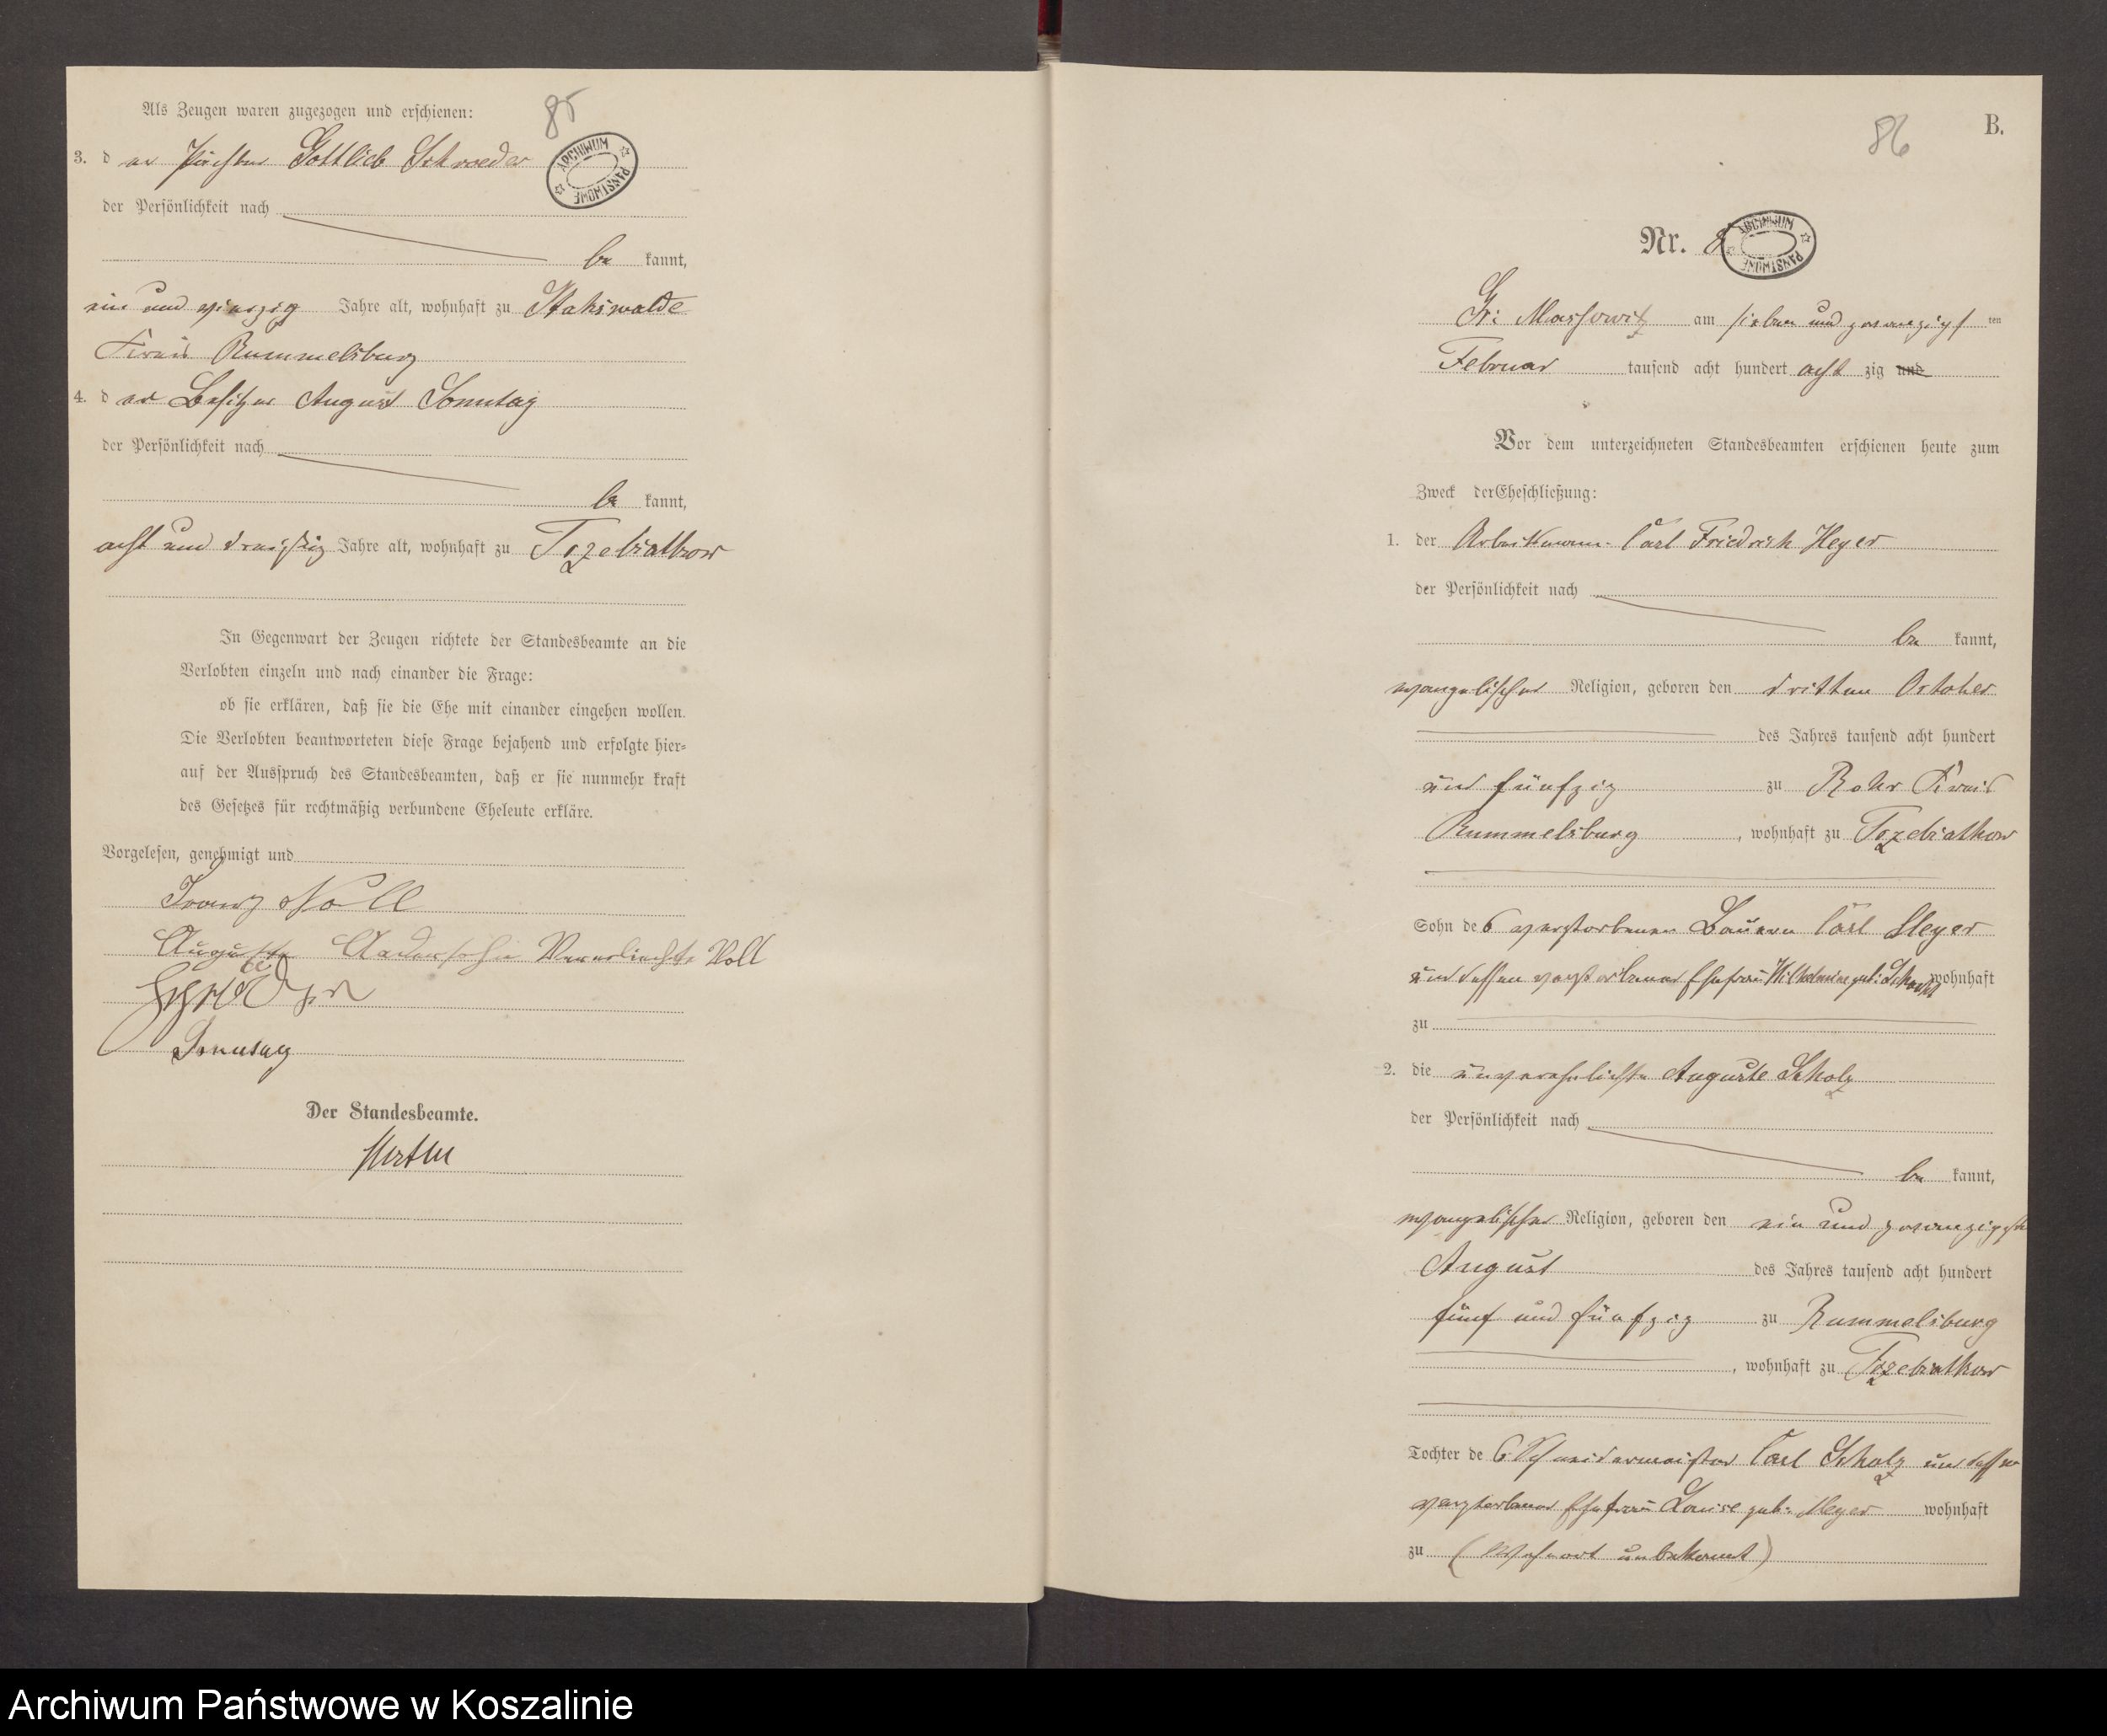 85
Als Zeugen waren zugezogen und erschienen:
ARCHIWUM PAŃSTWOWE
3. d er Pächter Gottlieb Schroeder
der Persönlichkeit nach
be kannt,
ein und vierzig Jahre alt, wohnhaft zu
Kreis Rummelsburg
4. d er Besitzer August Sonntag
der Persönlichkeit nach
be kannt,
acht und dreißig Jahre alt, wohnhaft zu Trzebiatkow
In Gegenwart der Zeugen richtete der Standesbeamte an die
Verlobten einzeln und nach einander die Frage:
ob sie erklären, daß sie die Ehe mit einander eingehen wollen.
Die Verlobten beantworteten diese Frage bejahend und erfolgte hier-
auf der Ausspruch des Standesbeamten, daß er sie nunmehr kraft
des Gesetzes für rechtmäßig verbundene Eheleute erkläre.
Vorgelesen, genehmigt und
Franz Noll
Auguste Verehlichte Noll
Schröder
Sonntag
Der Standesbeamte.
86
B.
Nr. 8.
ARCHIWUM PAŃSTWOWE
Gr: Massowitz am sieben und zwanzigst ten
Februar tausend acht hundert acht zig und
Vor dem unterzeichneten Standesbeamten erschienen heute zum
Zweck der Eheschließung:
1. der Arbeitsmann Carl Friedrich Heyer
der Persönlichkeit nach
be kannt,
evangelischer Religion, geboren den dritten October
des Jahres tausend acht hundert
und fünfzig zu Rohr Kreis
Rummelsburg, wohnhaft zu Trzebiatkow
Sohn des verstorbenen Bauern Carl Heyer
und dessen verstorbener Ehefrau Wilhelmine geb: wohnhaft
zu
2. die unverehelichte Auguste Scholz
der Persönlichkeit nach
be kannt,
evangelischer Religion, geboren den ein und zwanzigsten
August des Jahres tausend acht hundert
fünf und fünfzig zu Rummelsburg
, wohnhaft zu Trzebiatkow
Tochter des Schneidermeister Carl Scholz und dessen
verstorbener Ehefrau Louise geb: Meyer wohnhaft
zu (Wohnort unbekannt)
Archiwum Państwowe w Koszalinie